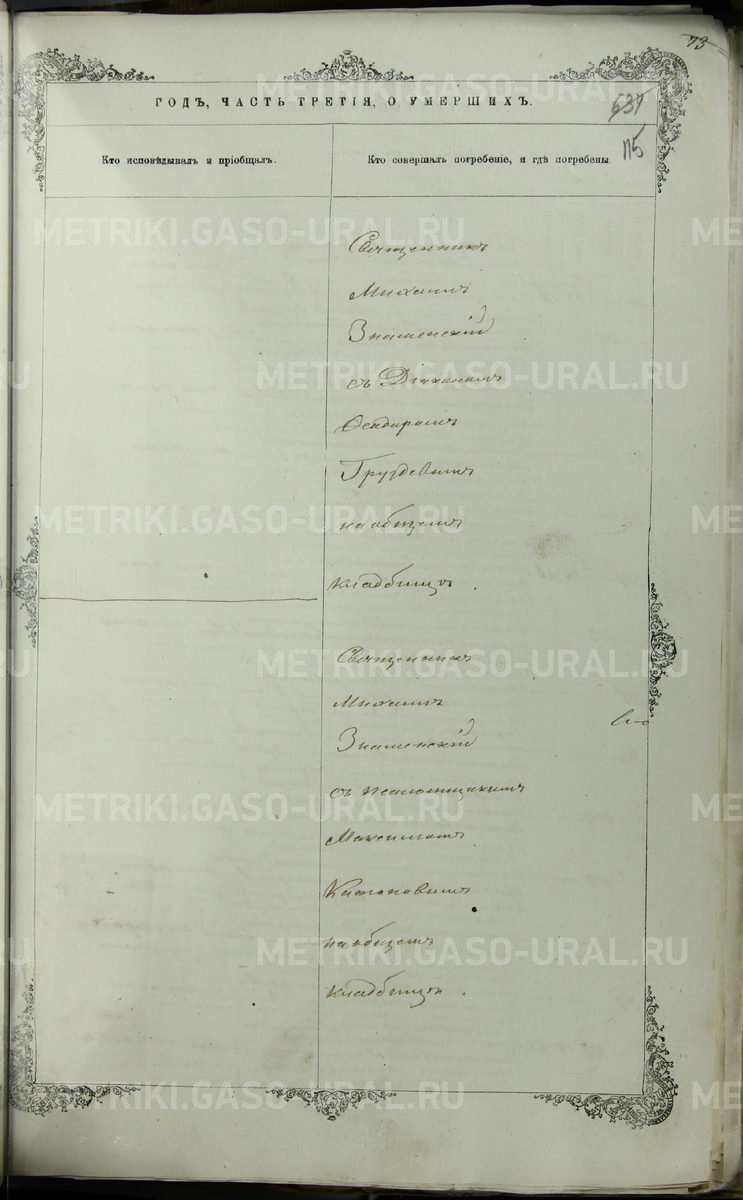 73
ГОДЪ, ЧАСТЬ ТРЕТІЯ, О УМЕРШИХЪ.
537
115
Кто исповѣдывалъ и пріобщалъ.
Кто совершалъ погребеніе, и гдѣ погребены.
Священникъ
Михаилъ
Знаменскій
съ Діакономъ
Груздевымъ
на общемъ
кладбищѣ.
Священникъ
Михаилъ
Знаменскій
съ псаломщикомъ
на общемъ
кладбищѣ.
METRIKI.GASO-URAL.RU